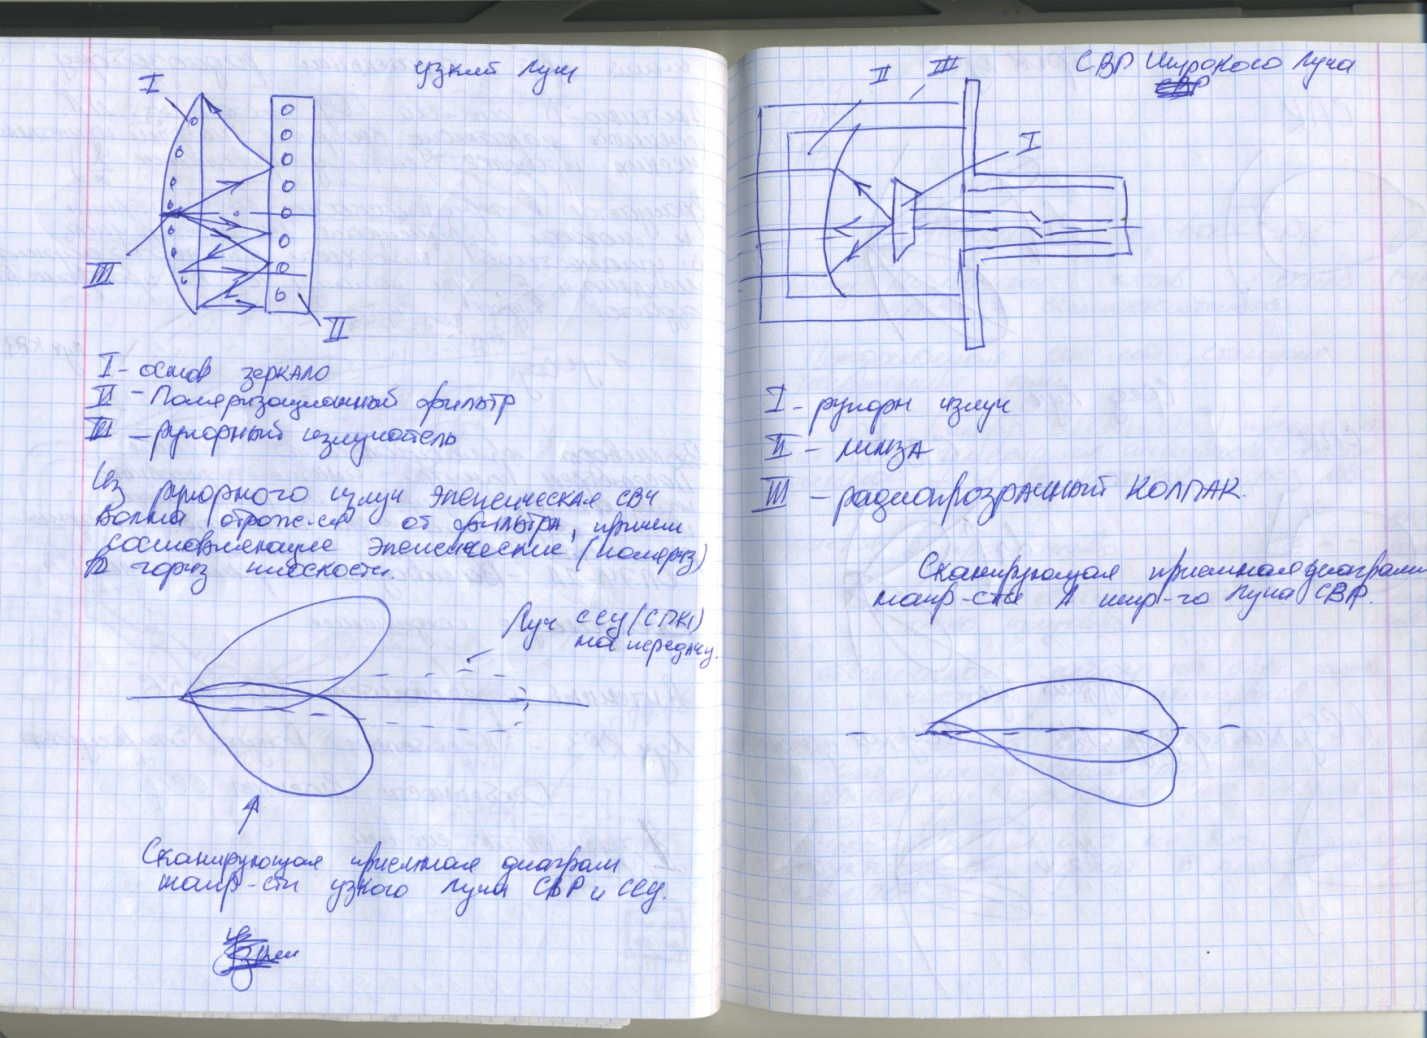 узкий луч
I
III
II
I - основ зеркало
II - Поляризационный фильтр
III - рупорный излучатель
Из рупорного излуч эпепсическая СВЧ
волна отрожется от фильтра, причем
состовляющие эпепсические (поляриз)
в гориз плоскости.
Луч ССУ (СПК1)
на передачу.
Сканирующая приемная диаграм
напр-сти узкого луча СВР и ССУ.
СВР Широкого Луча
II
III
I
I - рупорн излуч
II - линза
III - радиопрозрачный колпак.
Сканирующая приемная диаграм
напр-сти шир-го луча СВР.